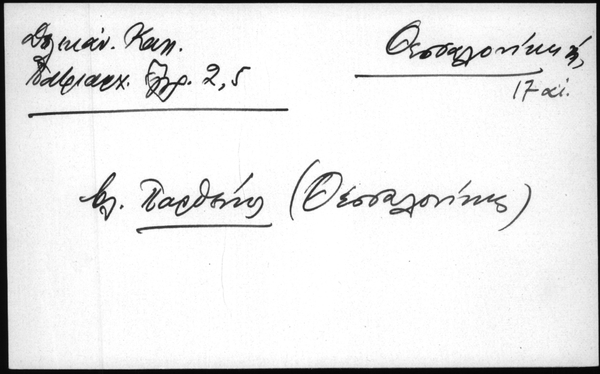 Δελικάν. Καλ.
Πατριαρχ. Ἔγγρ. 2, 5
Θεσσαλονίκης,
17 αἰ.
βλ. Παρθένιος (Θεσσαλονίκης)